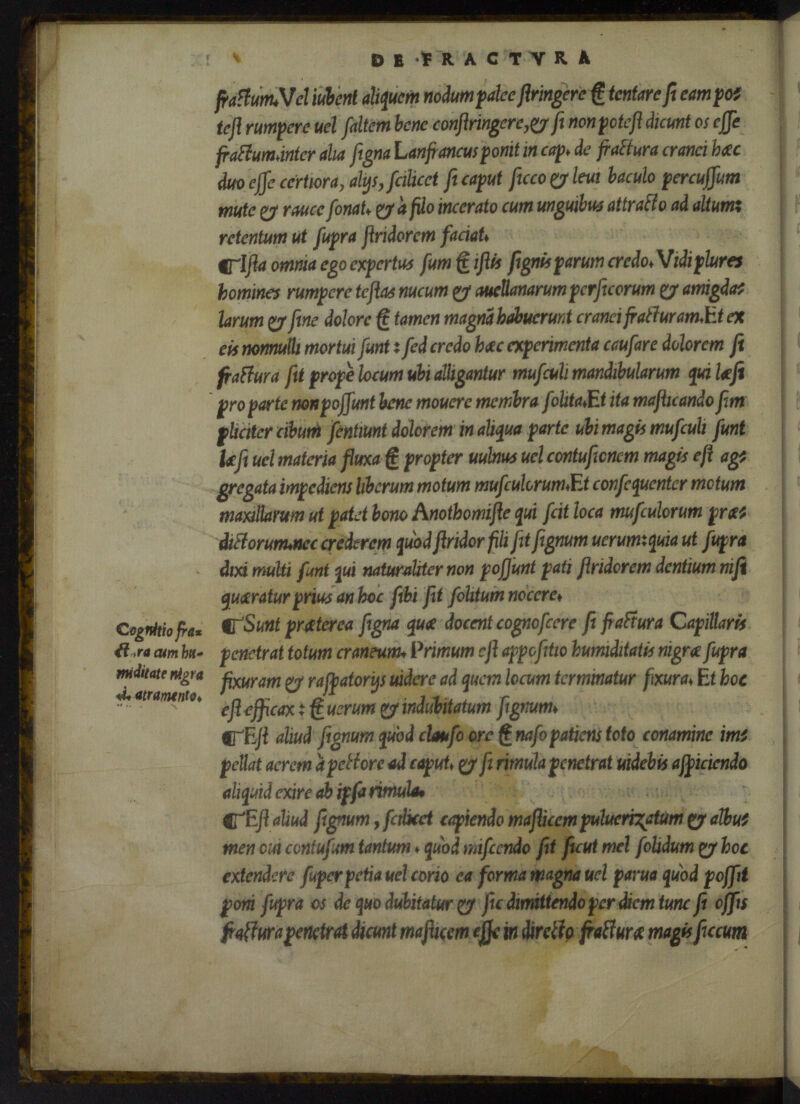 DE FRACTVRA
fractum. Vel iubent aliquem nodum paleę stringere & tentare si eam pos
test rumpere uel saltem bene constringere, & si non potest dicunt os esse
fractum. inter alia signa Lanfrancus ponit in cap. de fractura cranei hæc
duo esse certiora, alijs, scilicet si caput sicco & leui baculo percussum
mute & rauce sonat. & à filo incerato cum unguibus attracto ad altum:
retentum ut supra stridorem faciat.
¶ Ista omnia ego expertus sum & istis signis parum credo. Vidi plures
homines rumpere testas nucum & auellanarum persicorum & amigda
larum & sine dolore & tamen magnā habuerunt cranei fracturam. Et ex
eis nonnulli mortui sunt: sed credo hæc experimenta causare dolorem si
fractura sit propè locum ubi alligantur musculi mandibularum qui læsi
pro parte non possunt bene mouere membra solita. Et ita masticando sim
pliciter cibum sentiunt dolorem in aliqua parte ubi magis musculi sunt
læsi uel materia fluxa & propter uulnus uel contusionem magis est ag
gregata impediens liberum motum musculorum. Et consequenter motum
maxillarum ut patet bono Anothomiste qui scit loca musculorum præ
dictorum. nec crederem quòd stridor fili sit signum uerum: quia ut supra
dixi multi sunt qui naturaliter non possunt pati stridorem dentium nisi
quæratur prius an hoc sibi sit solitum nocere.
¶ Sunt præterea signa quæ docent cognoscere si fractura Capillaris
penetrat totum craneum. Primum est appositio humiditatis nigræ supra
fixuram & raspatorijs uidere ad quem locum terminatur fixura. Et hoc
est efficax: & uerum & indubitatum signum.
¶ Est aliud signum quòd clauso ore & naso patiens toto conamine im
pellat aerem à pectore ad caput. & si rimula penetrat uidebis aspiciendo
aliquid exire ab ipsa rimula.
¶ Est aliud signum, scilicet capiendo masticem puluerizatum & albu
men oui contusum tantum. quòd miscendo sit sicut mel solidum & hoc
extendere super petia uel corio ea forma magna uel parua quòd possit
poni supra os de quo dubitatur & sic dimittendo per diem tunc si ossis
fractura penetrat dicunt masticem esse in directo fracturæ magis siccum
Cognitio fra
ct.ra cum hu-
miditate nigra
.i. atramento.